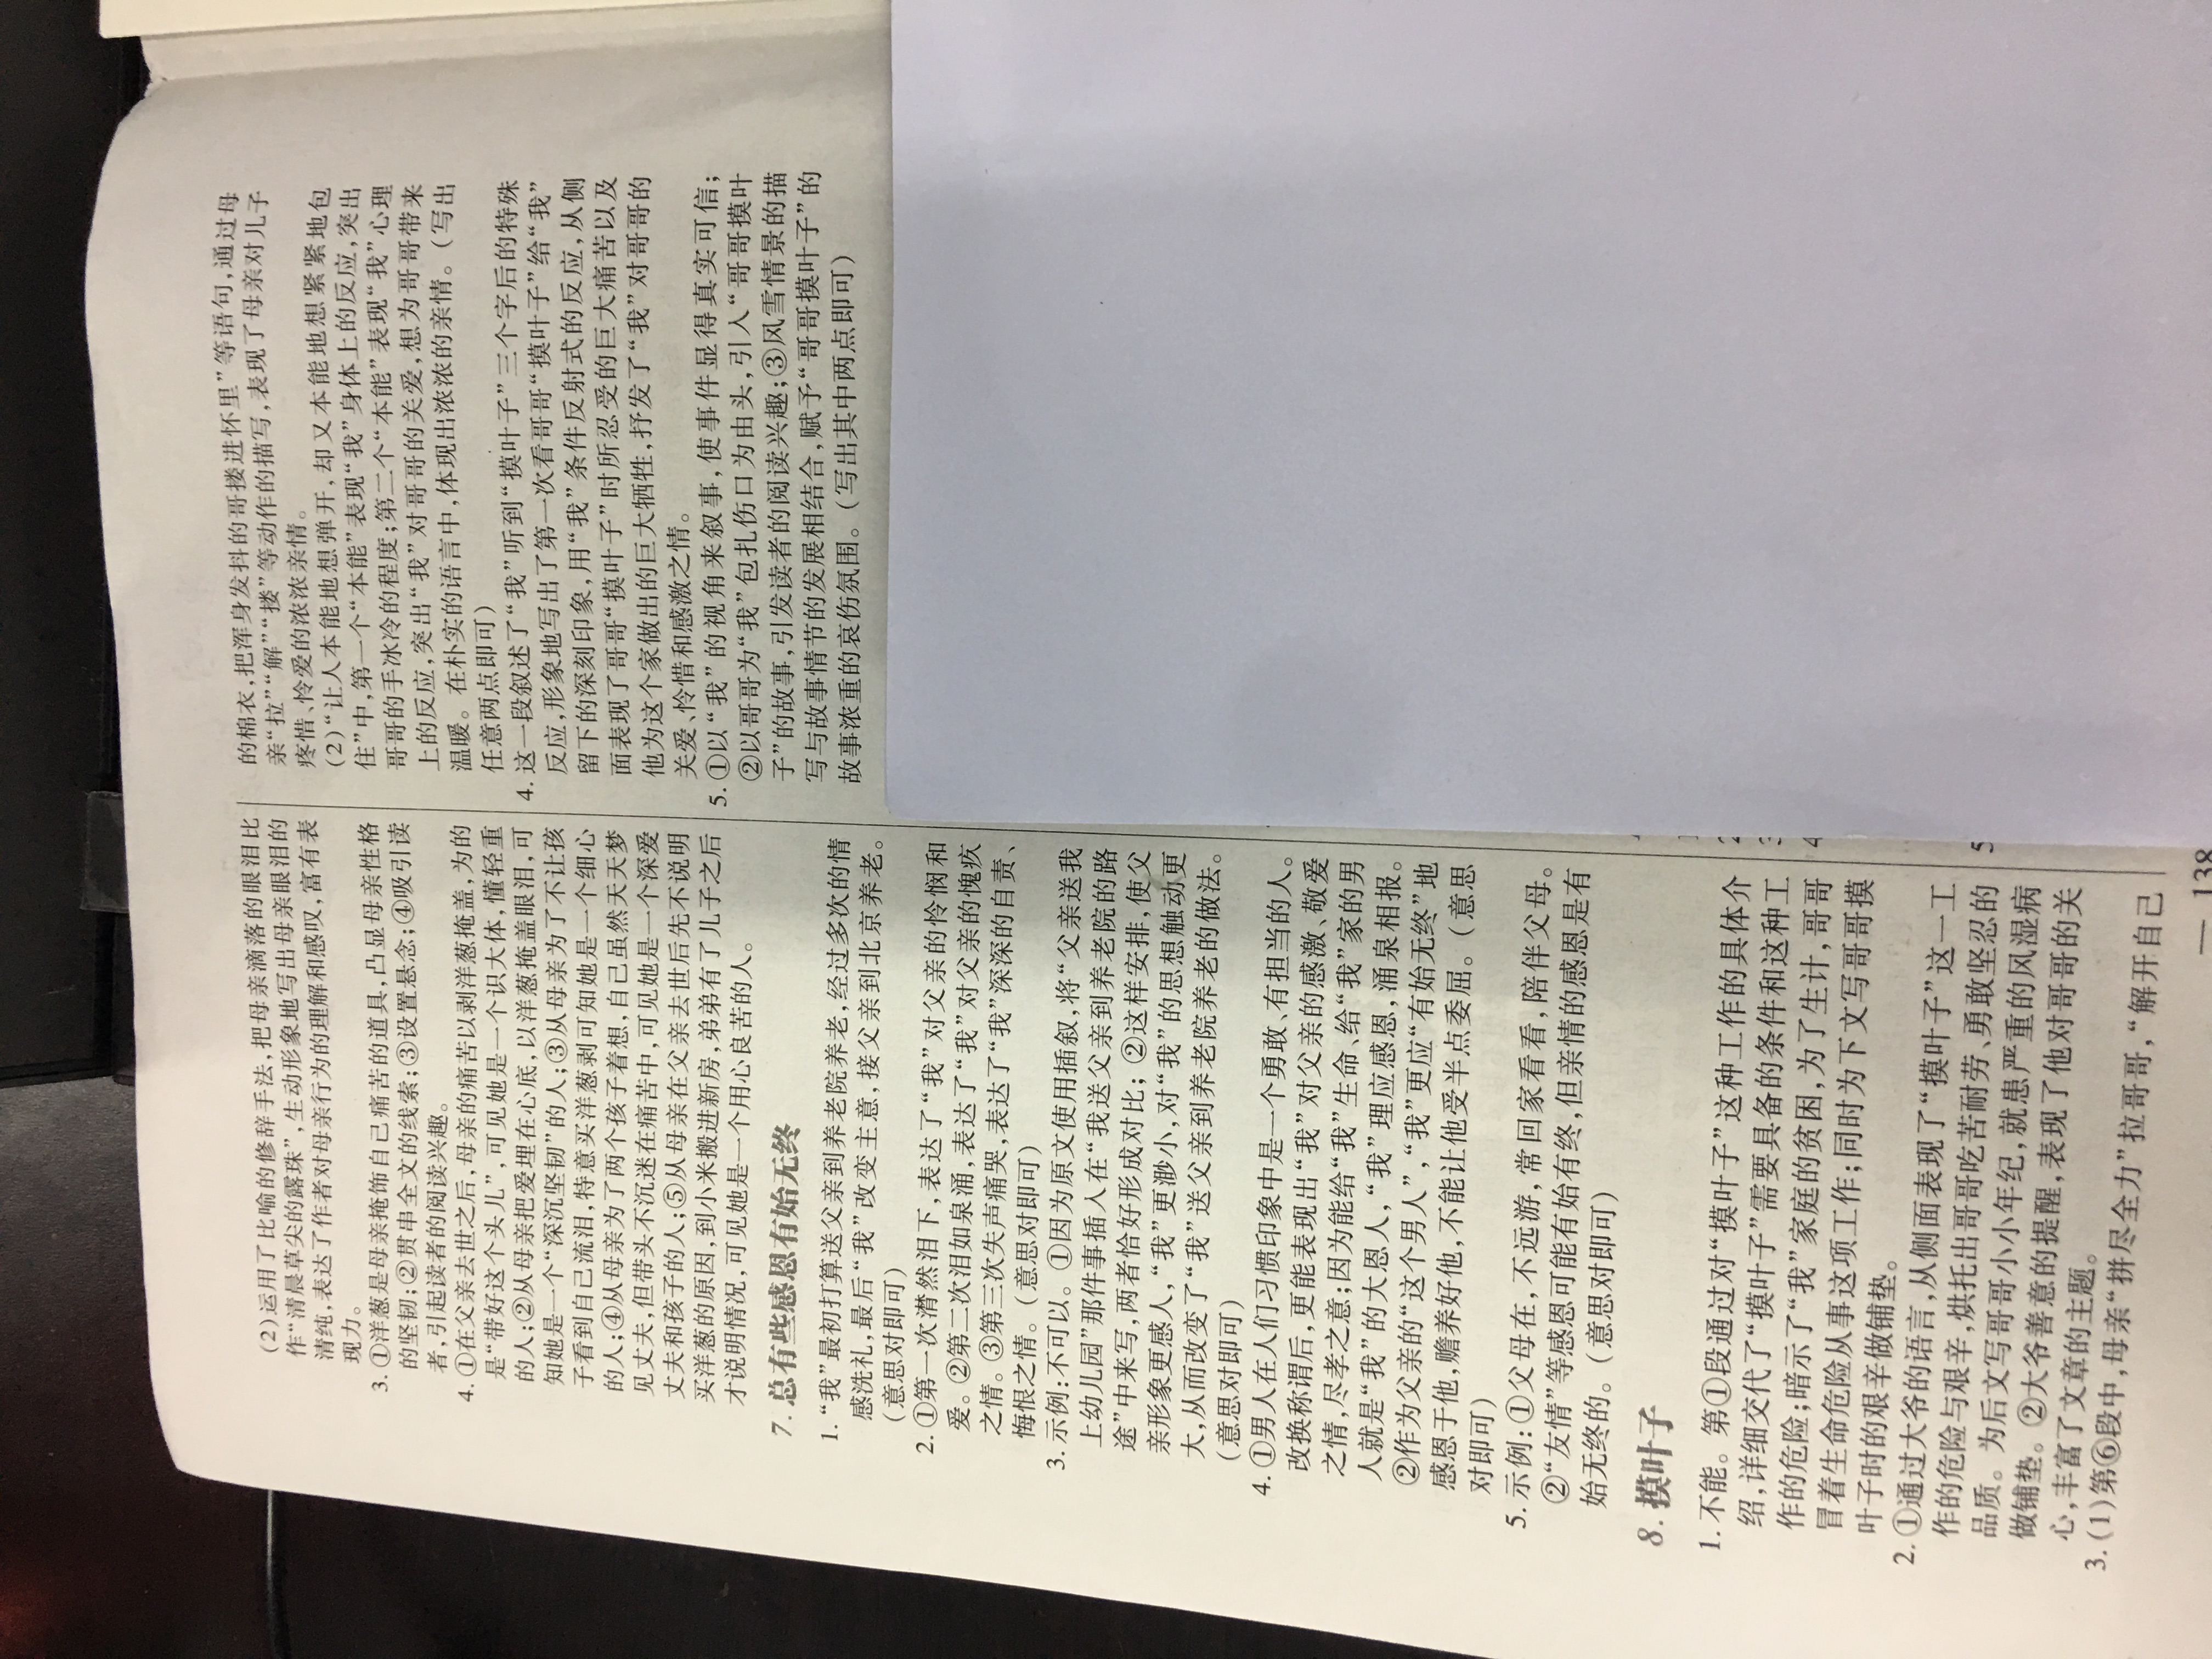 (2)运用了比喻的修辞手法,把母亲滴落的眼泪比
作“清晨草尖的露珠”,生动形象地写出母亲眼泪的
清纯,表达了作者对母亲行为的理解和感叹,富有表
现力。
3. ①洋葱是母亲掩饰自己痛苦的道具,凸显母亲性格
的坚韧;②贯串全文的线索;③设置悬念;④吸引读
者,引起读者的阅读兴趣。
4. ①在父亲去世之后,母亲的痛苦以剥洋葱掩盖,为的
是“带好这个头儿”,可见她是一个识大体,懂轻重
的人;②从母亲把爱埋在心底,以洋葱掩盖眼泪,可
知她是一个“深沉坚韧”的人;③从母亲为了不让孩
子看到自己流泪,特意买洋葱剥可知她是一个细心
的人;④从母亲为了两个孩子着想,自己虽然天天梦
见丈夫,但带头不沉迷在痛苦中,可见她是一个深爱
丈夫和孩子的人;⑤从母亲在父亲去世后先不说明
买洋葱的原因,到小米搬进新房,弟弟有了儿子之后
才说明情况,可见她是一个用心良苦的人。
7. 总有些感恩有始无终
1. “我”最初打算送父亲到养老院养老,经过多次的情
感洗礼,最后“我”改变主意,接父亲到北京养老。
(意思对即可)
2. ①第一次潸然泪下,表达了“我”对父亲的怜悯和
爱。②第二次泪如泉涌,表达了“我”对父亲的愧疚
之情。③第三次失声痛哭,表达了“我”深深的自责、
悔恨之情。(意思对即可)
3. 示例:不可以。①因为原文使用插叙,将“父亲送我
上幼儿园”那件事插入在“我送父亲到养老院的路
途”中来写,两者恰好形成对比;②这样安排,使父
亲形象更感人,“我”更渺小,对“我”的思想触动更
大,从而改变了“我”送父亲到养老院养老的做法。
(意思对即可)
4. ①男人在人们习惯印象中是一个勇敢、有担当的人。
改换称谓后,更能表现出“我”对父亲的感激、敬爱
之情,尽孝之意;因为能给“我”生命、给“我”家的男
人就是“我”的大恩人,“我”理应感恩,涌泉相报。
②作为父亲的“这个男人”,“我”更应“有始无终”地
感恩于他,赡养好他,不能让他受半点委屈。(意思
对即可)
5. 示例:①父母在,不远游,常回家看看,陪伴父母。
②“友情”等感恩可能有始有终,但亲情的感恩是有
始无终的。(意思对即可)
8. 摸叶子
1. 不能。第①段通过对“摸叶子”这种工作的具体介
绍,详细交代了“摸叶子”需要具备的条件和这种工
作的危险;暗示了“我”家庭的贫困,为了生计,哥哥
冒着生命危险从事这项工作;同时为下文写哥哥摸
叶子时的艰辛做铺垫。
2. ①通过大爷的语言,从侧面表现了“摸叶子”这一工
作的危险与艰辛,烘托出哥哥吃苦耐劳、勇敢坚忍的
品质。为后文写哥哥小小年纪,就患严重的风湿病
做铺垫。②大爷善意的提醒,表现了他对哥哥的关
心,丰富了文章的主题。
3. (1)第⑥段中,母亲“拼尽全力”拉哥哥,“解开自己
的棉衣,把浑身发抖的哥搂进怀里”等语句,通过母
亲“拉”“解”“搂”等动作的描写,表现了母亲对儿子
疼惜、怜爱的浓浓亲情。
(2)“让人本能地想弹开,却又本能地想紧紧地包
住”中,第一个“本能”表现“我”身体上的反应,突出
哥哥的手冰冷的程度;第二个“本能”表现“我”心理
上的反应,突出“我”对哥哥的关爱,想为哥哥带来
温暖。在朴实的语言中,体现出浓浓的亲情。(写出
任意两点即可)
4. 这一段叙述了“我”听到“摸叶子”三个字后的特殊
反应,形象地写出了第一次看哥哥“摸叶子”给“我”
留下的深刻印象,用“我”条件反射式的反应,从侧
面表现了哥哥“摸叶子”时所忍受的巨大痛苦以及
他为这个家做出的巨大牺牲,抒发了“我”对哥哥的
关爱、怜惜和感激之情。
5. ①以“我”的视角来叙事,使事件显得真实可信;
②以哥哥为“我”包扎伤口为由头,引人“哥哥摸叶
子”的故事,引发读者的阅读兴趣;③风雪情景的描
写与故事情节的发展相结合,赋予“哥哥摸叶子”的
故事浓重的哀伤氛围。(写出其中两点即可)
2
3
4
5
— 138